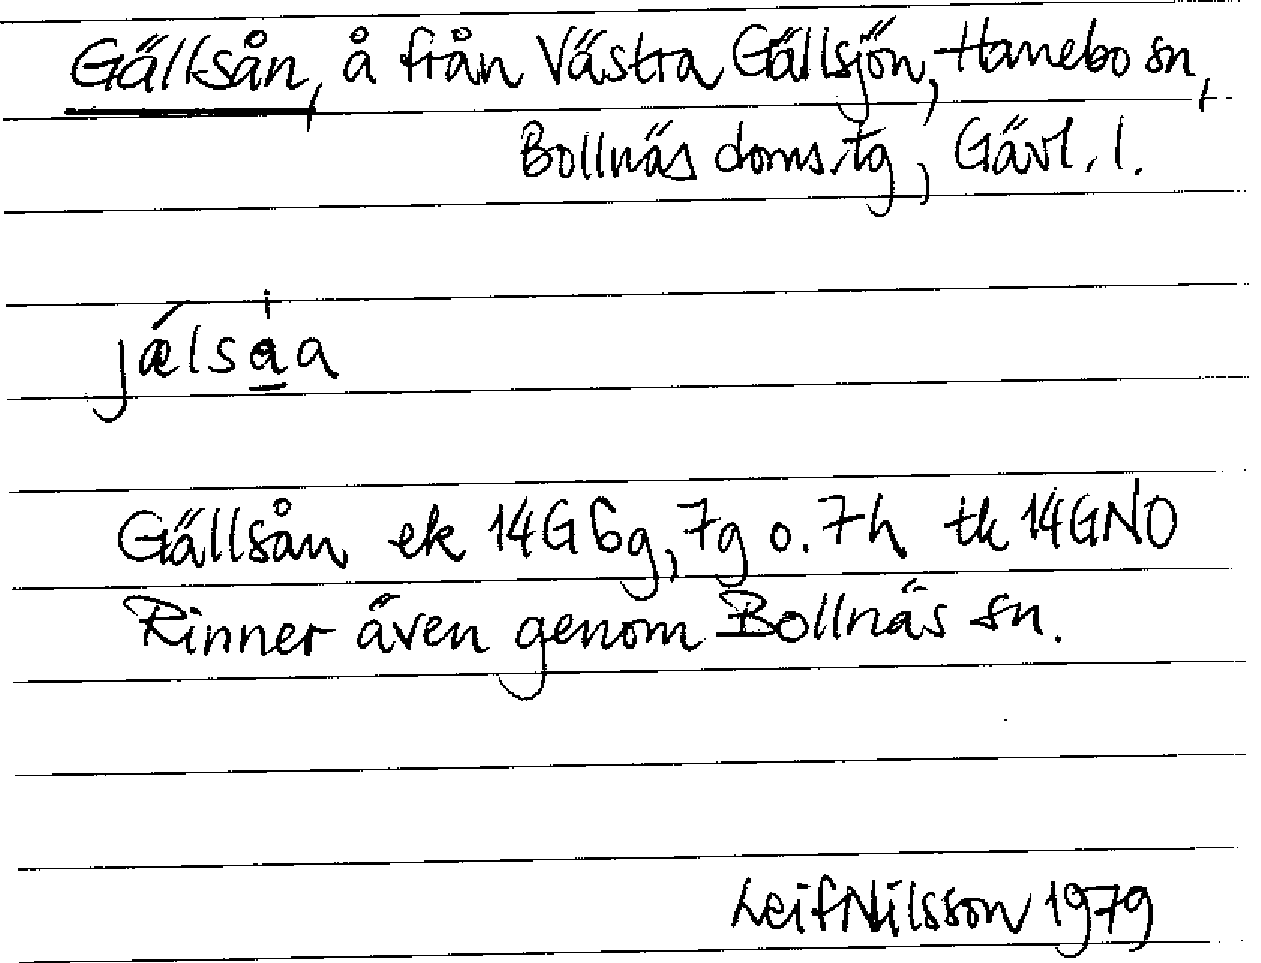 Gällsån, å från Västra Gällsjön, Hanebo sn,
Bollnäs doms.tg, Gävl. l.
jǽlsåa
Gällsån ek 14G 6g, 7g o. 7h tk 14GNO
Rinner även genom Bollnäs sn.
Leif Nilsson 1979